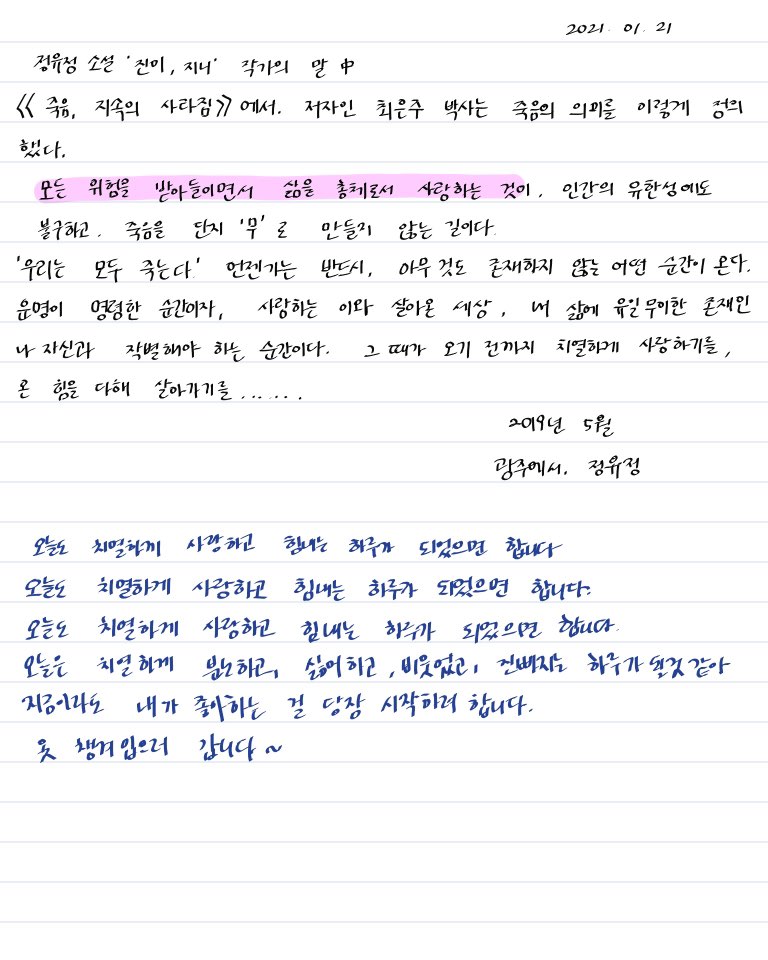 2021. 01. 21
정유정 소설 '진이, 지니' 작가의 말 中
《 죽음, 지속의 사라짐》에서. 저자인 최은주 박사는 죽음의 의의를 이렇게 정의
했다.
모든 위험을 받아들이면서 삶을 총체로서 사랑하는 것이, 인간의 유한성에도
불구하고, 죽음을 단지 '무'로 만들지 않는 길이다.
'우리는 모두 죽는다.' 언젠가는 반드시, 아무 것도 존재하지 않는 어떤 순간이 온다.
운명이 명령한 순간이자, 사랑하는 이와 살아온 세상, 내 삶에 유일무이한 존재인
나 자신과 작별해야 하는 순간이다. 그 때가 오기 전까지 치열하게 사랑하기를,
온 힘을 다해 살아가기를.......
2019년 5월
광주에서. 정유정
오늘도 치열하게 사랑하고 힘내는 하루가 되었으면 합니다
오늘도 치열하게 사랑하고 힘내는 하루가 되었으면 합니다.
오늘도 치열하게 사랑하고 힘내는 하루가 되었으면 합니다.
오늘은 치열하게 분노하고, 싫어하고, 비웃었고, 진빠지는 하루가 될것 같아
지금이라도 내가 좋아하는 걸 당장 시작하려 합니다.
옷 챙겨입으러 갑니다~